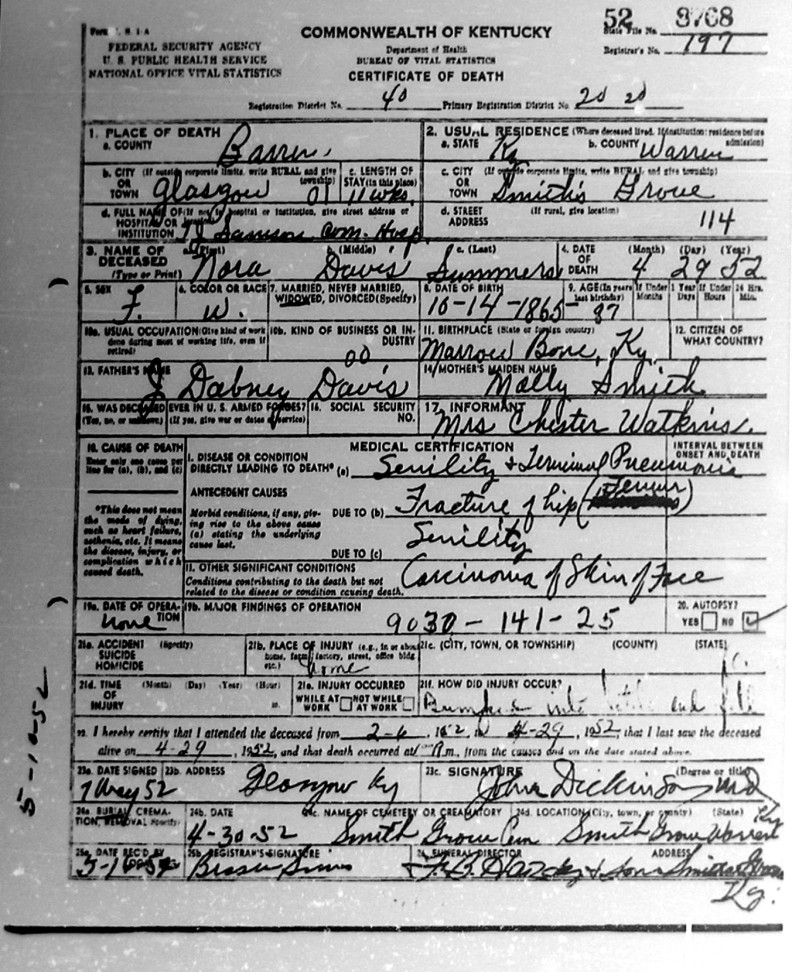 52 8768
Form V. S. 1-A
COMMONWEALTH OF KENTUCKY
State File No.
FEDERAL SECURITY AGENCY
Department of Health
Registrar's No. 197
U. S. PUBLIC HEALTH SERVICE
BUREAU OF VITAL STATISTICS
NATIONAL OFFICE VITAL STATISTICS
CERTIFICATE OF DEATH
Registration District No. 40 Primary Registration District No. 20 20
1. PLACE OF DEATH
2. USUAL RESIDENCE (Where deceased lived. If institution: residence before admission)
a. COUNTY Barren
a. STATE Ky b. COUNTY Warren
b. CITY (If outside corporate limits, write RURAL and give township) OR TOWN Glasgow 01
c. LENGTH OF STAY (in this place) 11 wks.
c. CITY (If outside corporate limits, write RURAL and give township) OR TOWN Smith's Grove
d. FULL NAME OF (If not in hospital or institution, give street address or location) HOSPITAL OR INSTITUTION T J Samson Com. Hosp.
d. STREET ADDRESS (If rural, give location) 114
3. NAME OF DECEASED (Type or Print)
a. (First) Nora b. (Middle) Davis c. (Last) Summers
4. DATE OF DEATH (Month) (Day) (Year) 4 29 52
5. SEX F.
6. COLOR OR RACE W.
7. MARRIED, NEVER MARRIED, WIDOWED, DIVORCED (Specify)
8. DATE OF BIRTH 10-14-1865
9. AGE (In years last birthday) 87
If Under 1 Year Months Days
If Under 24 Hrs. Hours Min.
10a. USUAL OCCUPATION (Give kind of work done during most of working life, even if retired)
10b. KIND OF BUSINESS OR INDUSTRY 00
11. BIRTHPLACE (State or foreign country) Marrow Bone, Ky.
12. CITIZEN OF WHAT COUNTRY?
13. FATHER'S NAME J Dabney Davis
14. MOTHER'S MAIDEN NAME Molly Smith
15. WAS DECEASED EVER IN U. S. ARMED FORCES? (Yes, no, or unknown) (If yes, give war or dates of service)
16. SOCIAL SECURITY NO.
17. INFORMANT Mrs Chester Watkins.
18. CAUSE OF DEATH
Enter only one cause per line for (a), (b), and (c)
*This does not mean the mode of dying, such as heart failure, asthenia, etc. It means the disease, injury, or complication which caused death.
MEDICAL CERTIFICATION
INTERVAL BETWEEN ONSET AND DEATH
I. DISEASE OR CONDITION DIRECTLY LEADING TO DEATH* (a) Senility & Terminal Pneumonia
ANTECEDENT CAUSES
Morbid conditions, if any, giving rise to the above cause (a) stating the underlying cause last.
DUE TO (b) Fracture of hip (Femur)
DUE TO (c) Senility
II. OTHER SIGNIFICANT CONDITIONS
Conditions contributing to the death but not related to the disease or condition causing death.
Carcinoma of Skin of Face
19a. DATE OF OPERATION none
19b. MAJOR FINDINGS OF OPERATION 9030-141-25
20. AUTOPSY? YES NO
21a. ACCIDENT SUICIDE HOMICIDE (Specify)
21b. PLACE OF INJURY (e.g., in or about home, farm, factory, street, office bldg. etc.) home
21c. (CITY, TOWN, OR TOWNSHIP) (COUNTY) (STATE)
21d. TIME OF INJURY (Month) (Day) (Year) (Hour) m.
21e. INJURY OCCURRED WHILE AT WORK NOT WHILE AT WORK
21f. HOW DID INJURY OCCUR? and fell
22. I hereby certify that I attended the deceased from 2-6, 1952, to 4-29, 1952, that I last saw the deceased
alive on 4-29, 1952, and that death occurred at m., from the causes and on the date stated above.
23a. DATE SIGNED 7 May 52
23b. ADDRESS Glasgow Ky
23c. SIGNATURE (Degree or title) John Dickinson MD
24a. BURIAL, CREMATION, REMOVAL (Specify)
24b. DATE 4-30-52
24c. NAME OF CEMETERY OR CREAMATORY Smith Grove Cem
24d. LOCATION (City, town, or county) (State) Smith Grove Warren Ky
25a. DATE REC'D BY
25b. REGISTRAR'S SIGNATURE
26. FUNERAL DIRECTOR ADDRESS
& Sons Smiths Grove
Ky.
5-19-52